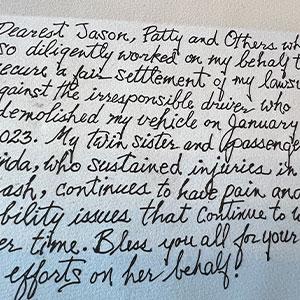 Dearest Jason, Patty and Others wh
so diligently worked on my behalf t
ecure a fair settlement of my lawsu
gainst the irresponsible driver who
demolished my vehicle on January
023. My twin sister and passenge
nda, who sustained injuries in
ash, continues to have pain and
bility issues that continue to w
er time. Bless you all for your
efforts on her behalf!